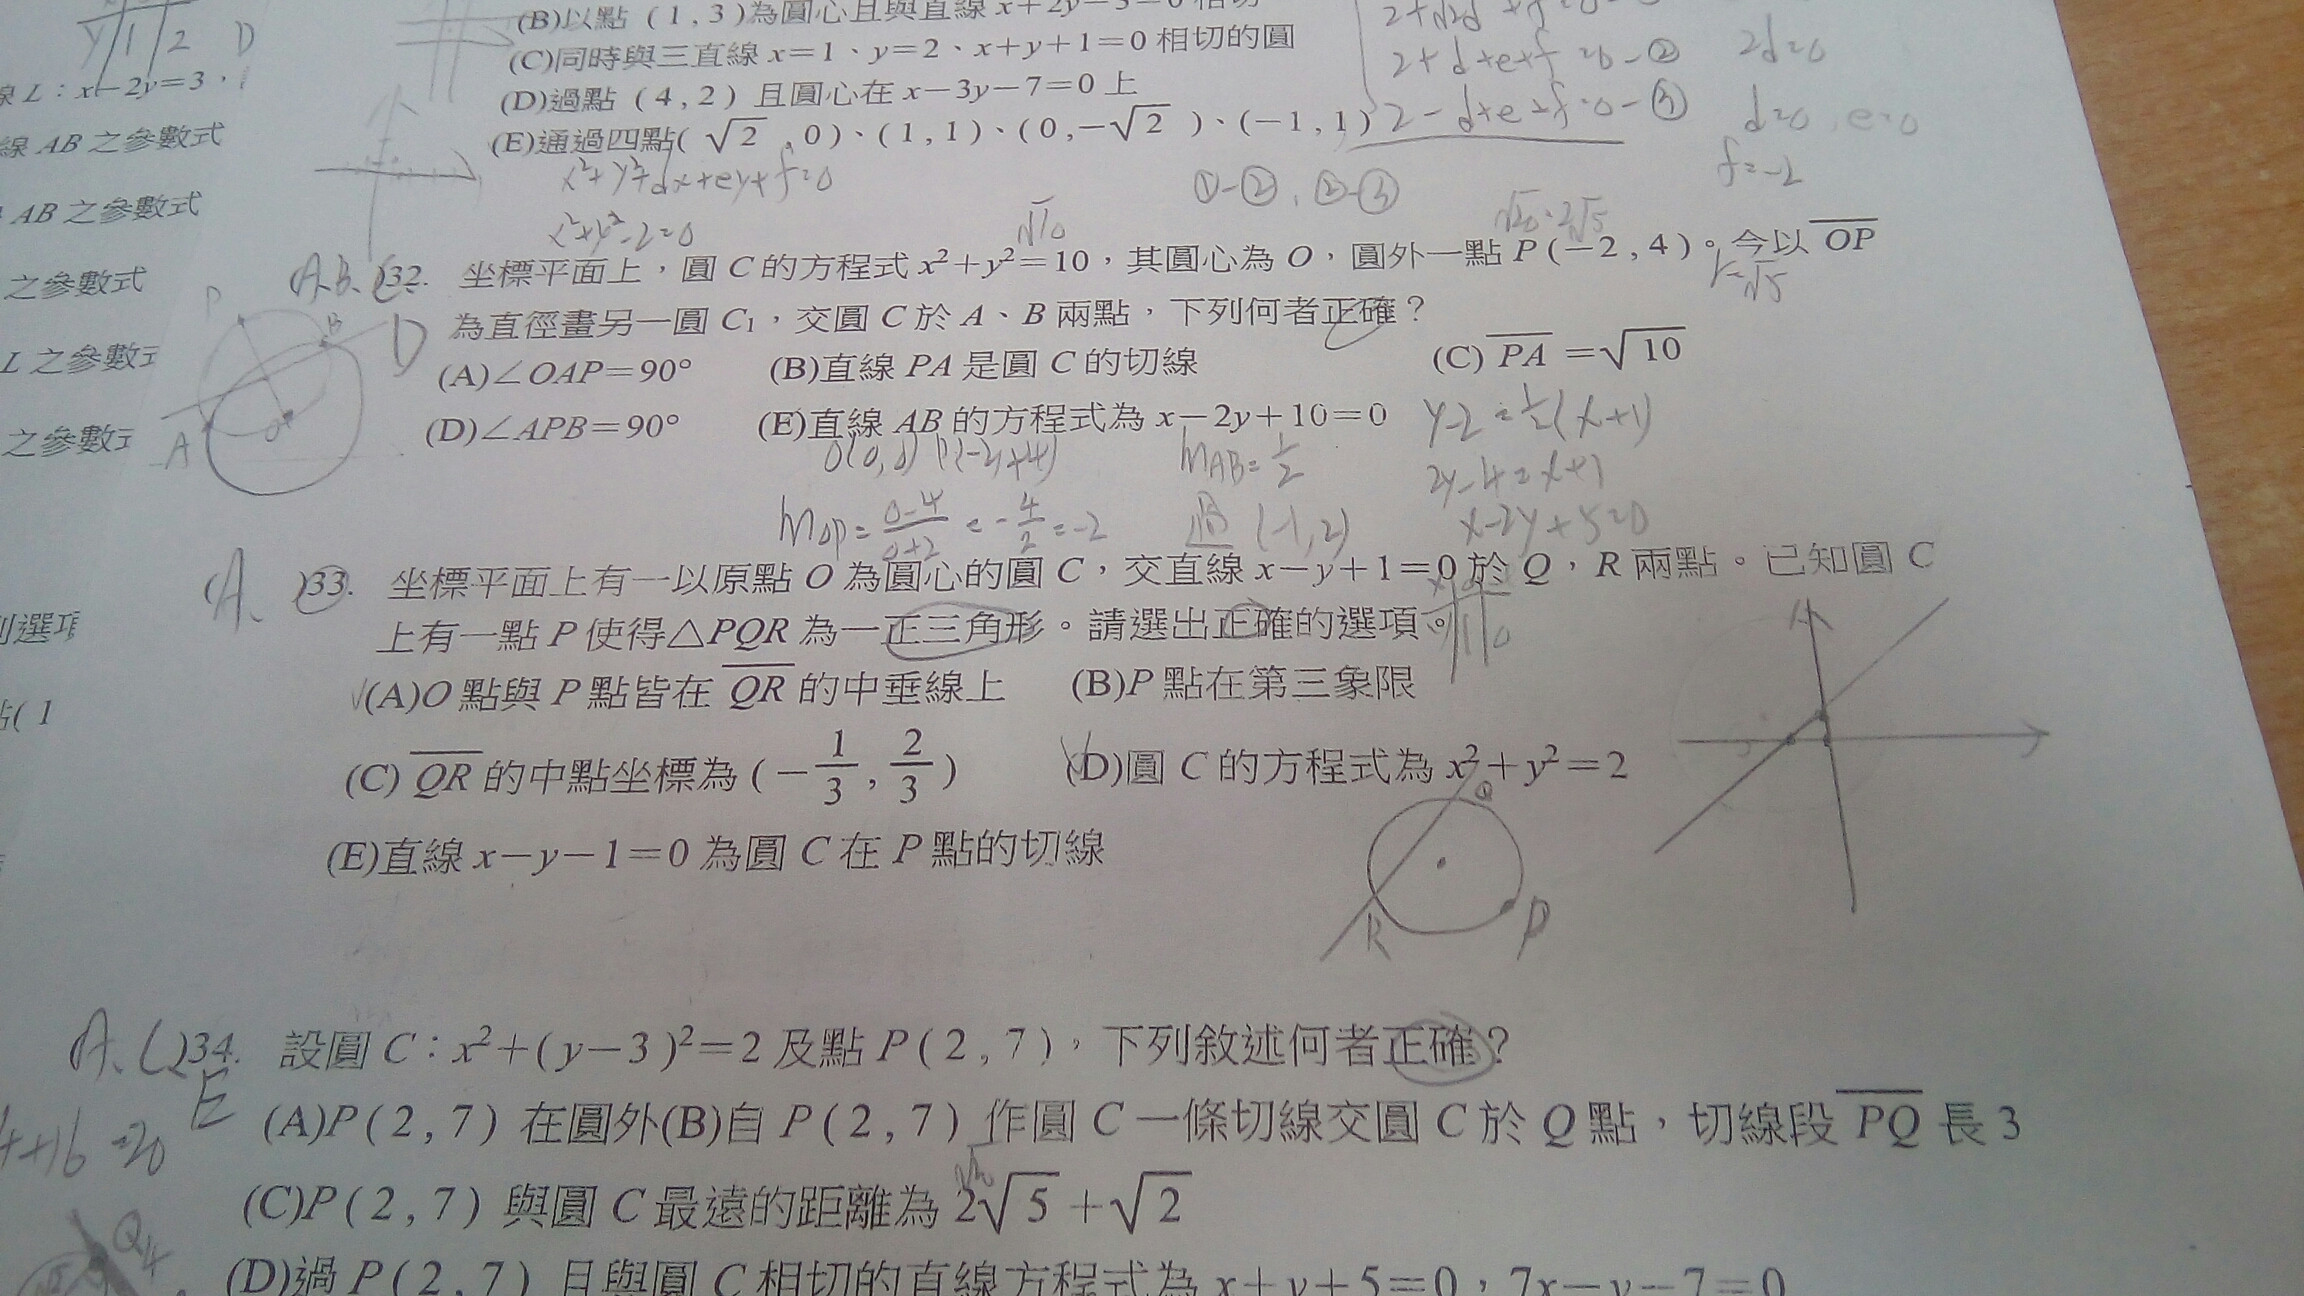 (B)以點(1,3)為圓心且與直線x+2y-3=0相切
(C)同時與三直線x=1、y=2、x+y+1=0相切的圓
(D)過點(4,2)且圓心在x-3y-7=0上
(E)通過四點(√2,0)、(1,1)、(0,-√2)、(-1,1)
y 1 2 D
線L:x-2y=3,
線AB之參數式
AB之參數式
之參數式
L之參數式
之參數式
2+d+e+f=0-②
2-d+e+f=0-③
2d=0
d=0,e=0
f=-2
x²+y²+dx+ey+f=0
①-②,②-③
x²+y²-2=0
√10
√20=2√5
A.B.C
D
32. 坐標平面上,圓C的方程式x²+y²=10,其圓心為O,圓外一點P(-2,4)。今以OP
r=√5
為直徑畫另一圓C₁,交圓C於A、B兩點,下列何者正確?
(A)∠OAP=90° (B)直線PA是圓C的切線 (C)PA=√10
(D)∠APB=90° (E)直線AB的方程式為x-2y+10=0
P B A O
O(0,0) P(-2,+4) mAB=1/2
y-2=1/2(x+1)
2y-4=x+1
mOP=0-4/0+2=-4/2=-2 過(-1,2)
x-2y+5=0
(A. )33. 坐標平面上有一以原點O為圓心的圓C,交直線x-y+1=0於Q,R兩點。已知圓C
上有一點P使得△PQR為一正三角形。請選出正確的選項。
(A)O點與P點皆在QR的中垂線上 (B)P點在第三象限
(C)QR的中點坐標為(-1/3,2/3) (D)圓C的方程式為x²+y²=2
(E)直線x-y-1=0為圓C在P點的切線
Q
R P
A. ( )34. 設圓C:x²+(y-3)²=2及點P(2,7),下列敘述何者正確?
E
(A)P(2,7)在圓外(B)自P(2,7)作圓C一條切線交圓C於Q點,切線段PQ長3
4+16=20
(C)P(2,7)與圓C最遠的距離為2√5+√2
Q
(D)過P(2,7)且與圓C相切的直線方程式為x+y+5=0,7x-y-7=0